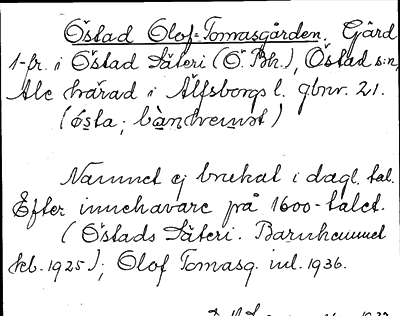 Östad Olof-Tomasgården. Gård
1-fr. i Östad Säteri (Ö. Bh.), Östad s:n,
Ale härad i Älfsborgs l. gbnr. 21.
Namnet ej brukat i dagl. tal.
Efter innehavare på 1600-talet.
(Östads Säteri. Barnhemmet
feb. 1925); Olof Tomasg. inl. 1936.